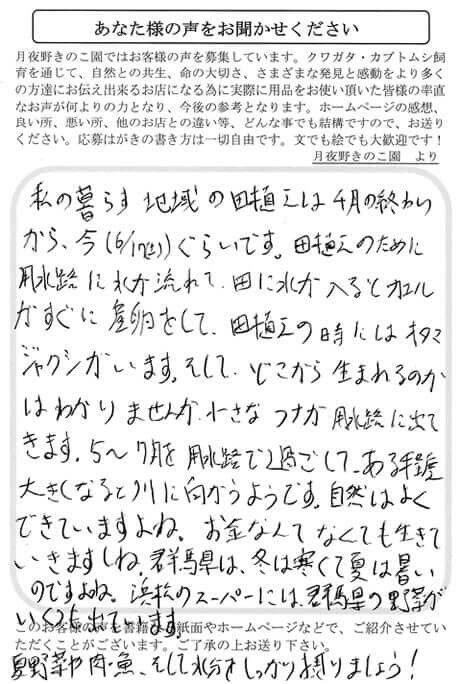 あなた様の声をお聞かせください
月夜野きのこ園ではお客様の声を募集しています。クワガタ・カブトムシ飼
育を通じて、自然との共生、命の大切さ、さまざまな発見と感動をより多く
の方達にお伝え出来るお店になる為に実際に用品をお使い頂いた皆様の率直
なお声が何よりの力となり、今後の参考となります。ホームページの感想、
良い所、悪い所、他のお店との違い等、どんな事でも結構ですので、お送り
ください。応募はがきの書き方は一切自由です。文でも絵でも大歓迎です！
月夜野きのこ園　より
私の暮らす地域の田植えは4月の終わり
から、今(6/17(土))ぐらいです。田植えのために
用水路に水が流れて、田に水が入るとカエル
がすぐに産卵をして、田植えの時にはオタマ
ジャクシがいます。そして、どこから生まれるのか
はわかりませんが、小さなフナが用水路に出て
きます。5〜7月を用水路で過ごして、ある程度
大きくなると川に向かうようです。自然はよく
できていますよね。お金なんてなくても生きて
いきますしね。群馬県は、冬は寒くて夏は暑い
のですよね。浜松のスーパーには、群馬県の野菜が
いくつも出ています。
このお客様の声を書籍、紙面やホームページなどで、ご紹介させてい
ただくことがございます。ご了承の上お送り下さい。
夏野菜や肉・魚、そして水分をしっかり摂りましょう！